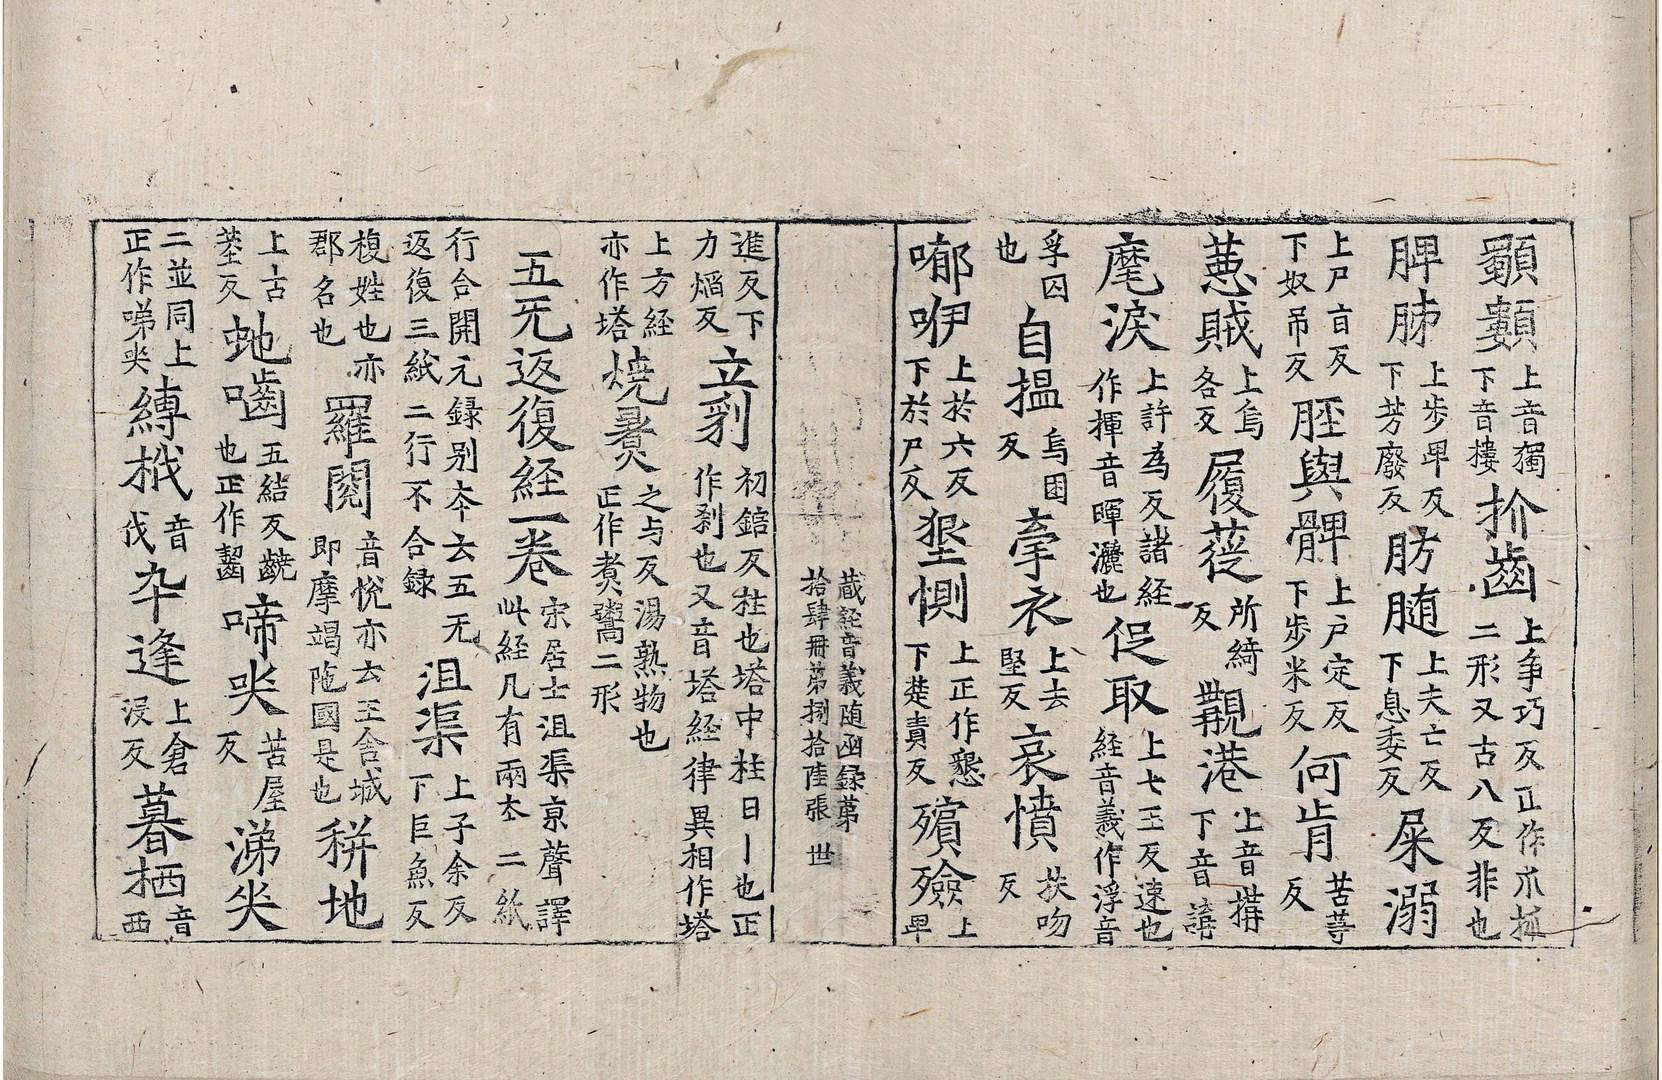 顳顬上音獨下音樓扴齒上爭巧反正作爪抓二形又古八反非也
脾肺上步卑反下芳廢反肪䐉上夫亡反下息委反屎溺
上尸盲反下奴吊反脛與髀上戶定反下步米反何肯苦等反
蒠賊上烏各反履蓰所綺反覯港上音搆下音講
麾淚上許為反諸經作揮音暉灑也促取上七玉反速也経音義作浮音
孚囚也自搵烏困反牽衣上去堅反哀憤扶吻反
唧咿上於六反下於尸反墾惻上正作懇下楚責反殯殮上卑
蔵経音義随函録苐拾肆冊苐捌拾陸張 世
進反下力焰反立剎初鎋反柱也塔中柱曰丨也正作剎也又音塔経律異相作塔
上方経亦作塔燒㷶之与反湯熟物也正作煑䰞二形
五无返復経一卷宋居士沮渠京聲譯此経凡有兩本二紙
行合開元録别夲云五无返復三紙二行不合録沮渠上子余反下巨魚反
複姓也亦郡名也羅閱音悅亦云王舍城即摩竭陁國是也秝地
上古莖反虵嚙五結反齩也正作齧啼哭苦屋反涕哭
二並同上正作啼哭縛栰音伐卒逢上倉浸反暮栖音西